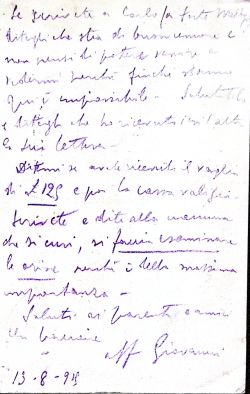 Se scrivete a Carlo fa
ditegli che stia di buon umore e
non pensi di potere venire a
vedermi perché finché stanno
qui è impossibile. Salutatelo
e ditegli che ho ricevuto
la sua lettera.
Ditemi se avete ricevuto il vaglia
di £ 125 e poi la cassa valigia.
Scrivete e dite alla mamma
che si curi, si faccia esaminare
le orine perché è della massima
importanza.
Saluti ai parenti e amici
Un bacione
aff Giovanni